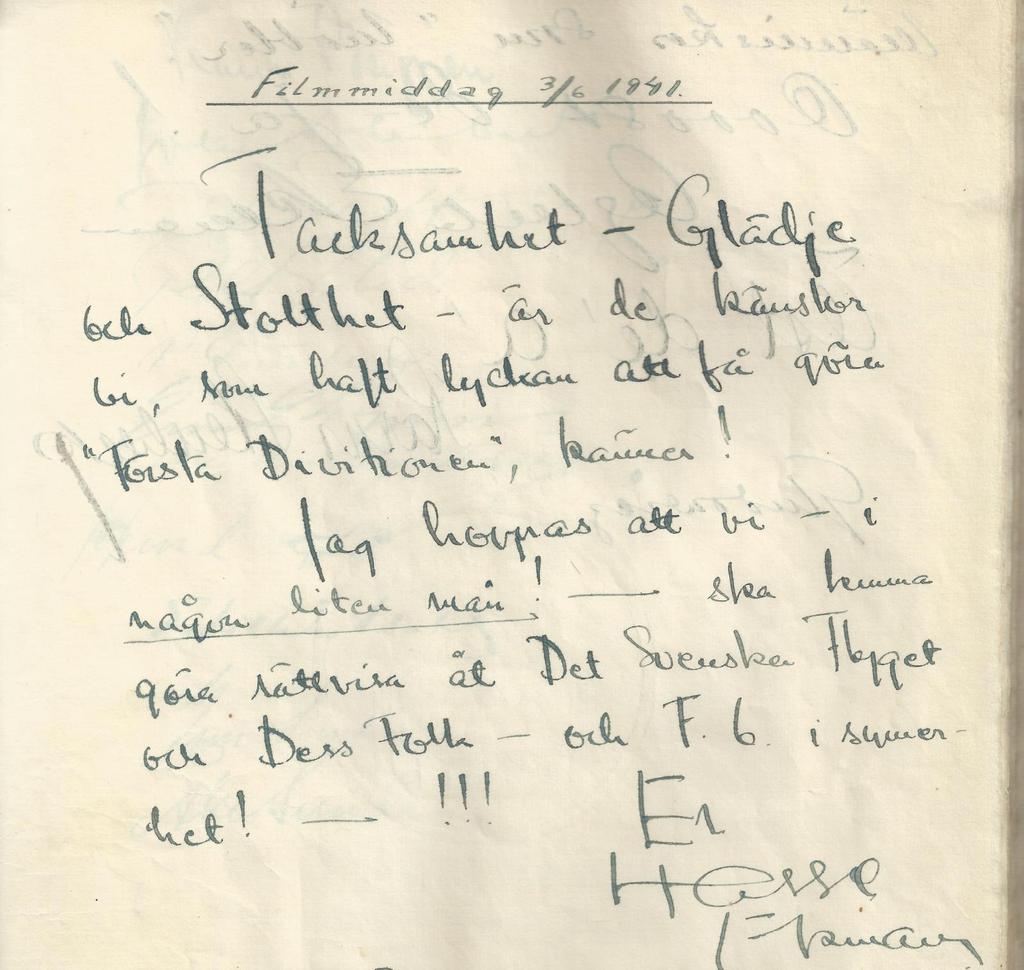 Filmmiddag 3/6 1941.
Tacksamhet - Glädje
och Stolthet - är de känslor
vi, som haft lyckan att få göra
"Första Divitionen", känner!
Jag hoppas att vi - i
någon liten mån! — ska kunna
göra rättvisa åt Det Svenska Flyget
och Dess Folk - och F. 6. i synner-
het! — !!!
Er
Hasse
Ekman